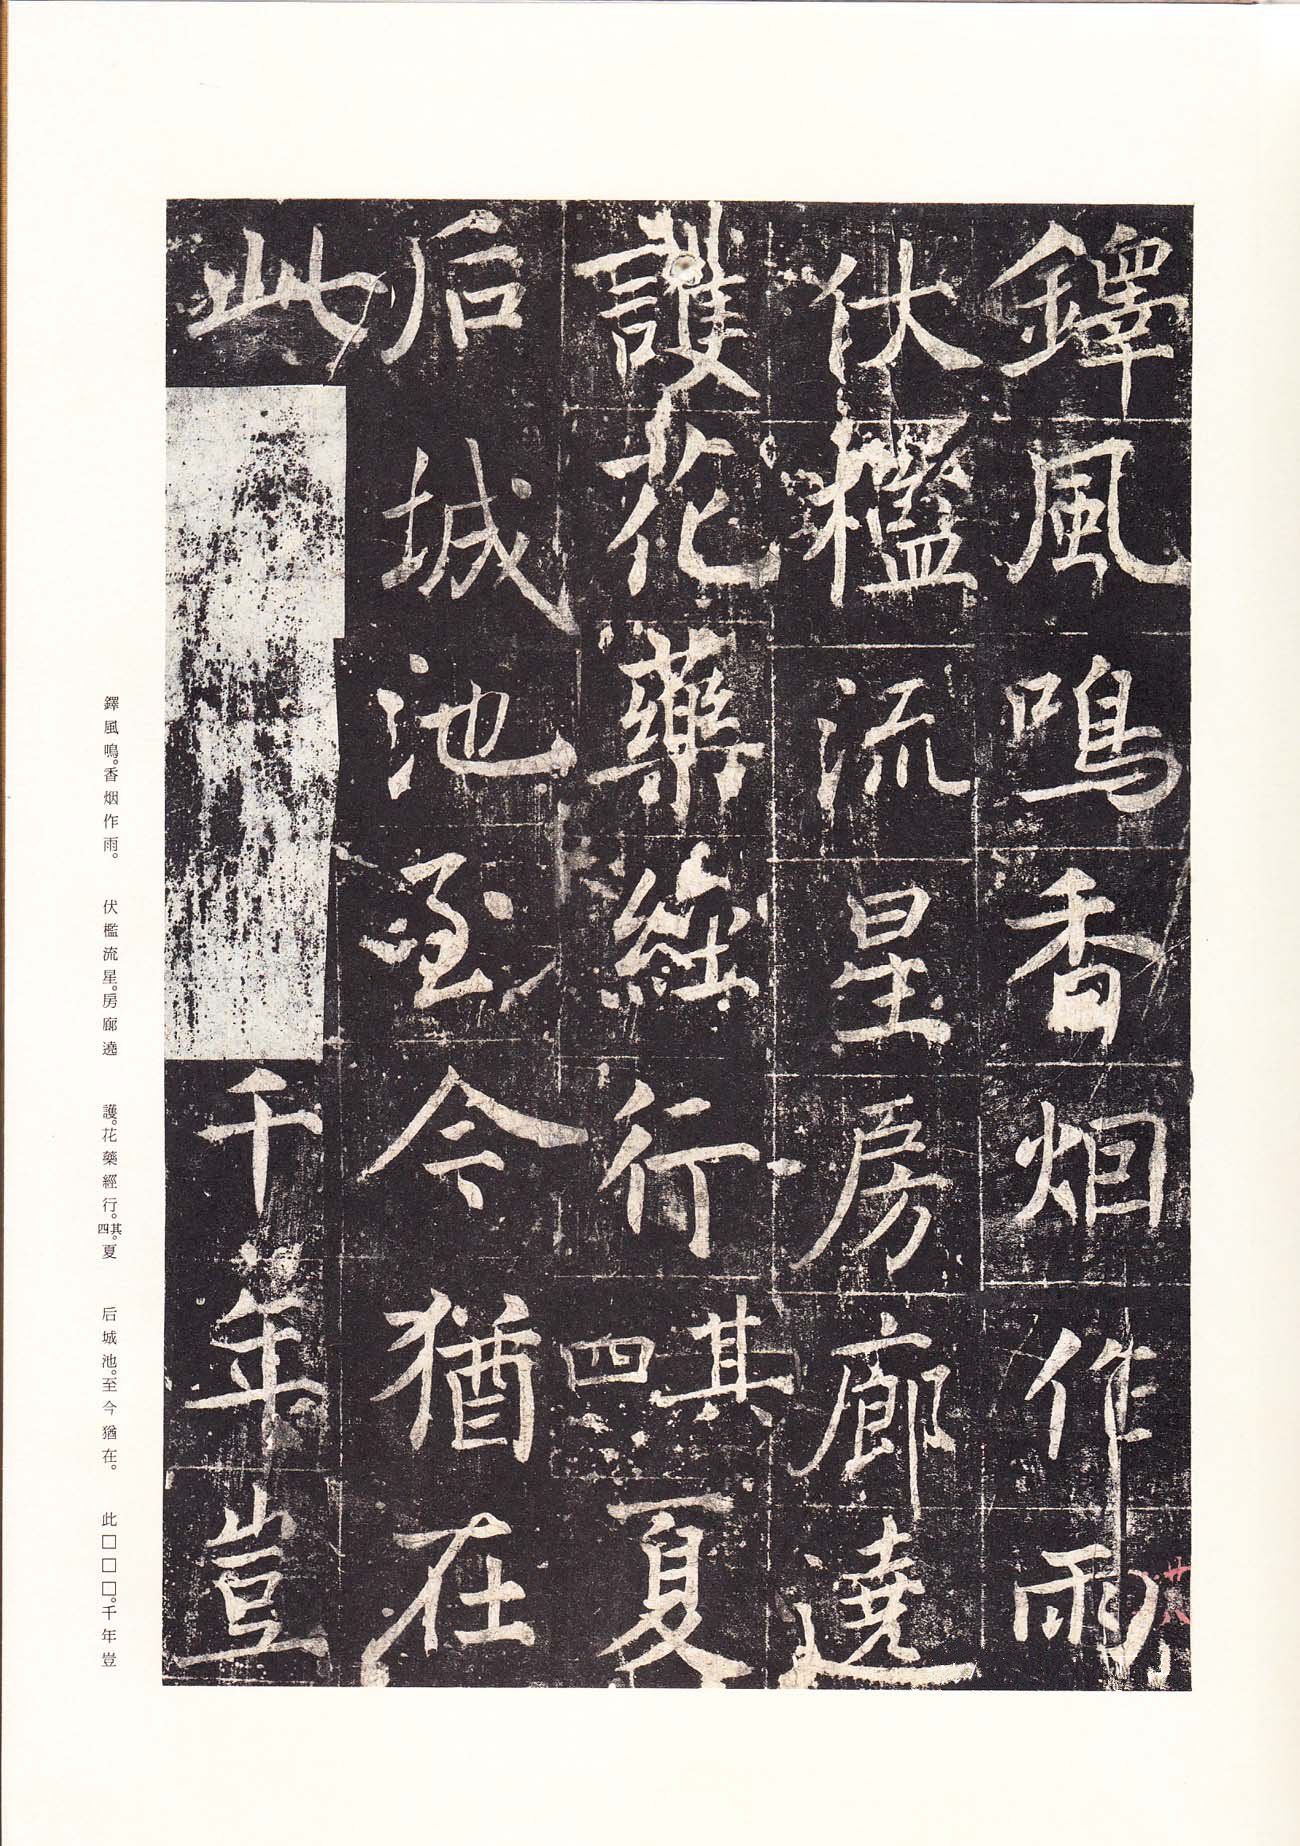 鐸風鳴香烟作雨
伏檻流星房廊遶
護花藥經行其四夏
后城池至今猶在
此千年豈
鐸風鳴。香烟作雨。
伏檻流星。房廊遶
護。花藥經行。其四。夏
后城池。至今猶在。
此□□□。千年豈